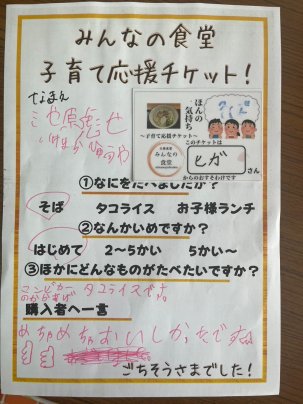 みんなの食堂
子育て応援チケット！
なまえ
ほんの
気持ち
～子育て応援チケット～
このチケットは
みんなの
食堂
ヒガ
さん
からのおすそわけです
①なにをたべましたか？
そば タコライス お子様ランチ
②なんかいめですか？
はじめて 2～5かい 5かい～
③ほかにどんなものがたべたいですか？
タコライスです。
購入者へ一言
めちゃめちゃおいしかったです
ごちそうさまでした！